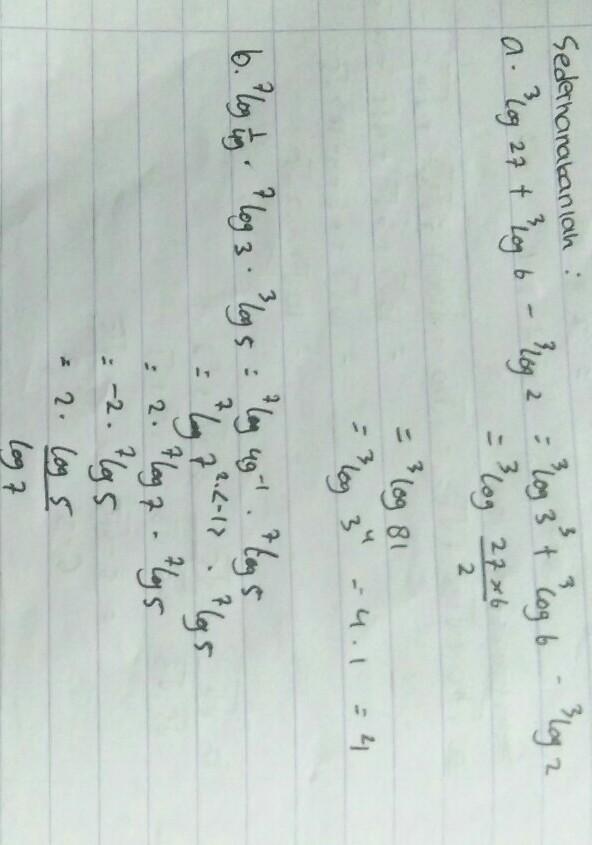 Sederhanakanlah :
a. ³log 27 + ³log 6 - ³log 2 = ³log 3³ + ³log 6 - ³log 2
= ³log 27×6/2
= ³log 81
= ³log 3⁴ = 4 . 1 = 4
b. ⁷log 1/49 . ⁷log 3 . ³log 5 = ⁷log 49⁻¹ . ⁷log 5
= ⁷log 7²·⁽⁻¹⁾ . ⁷log 5
= 2 . ⁷log 7 - ⁷log 5
= -2 . ⁷log 5
= 2 . log 5/log 7